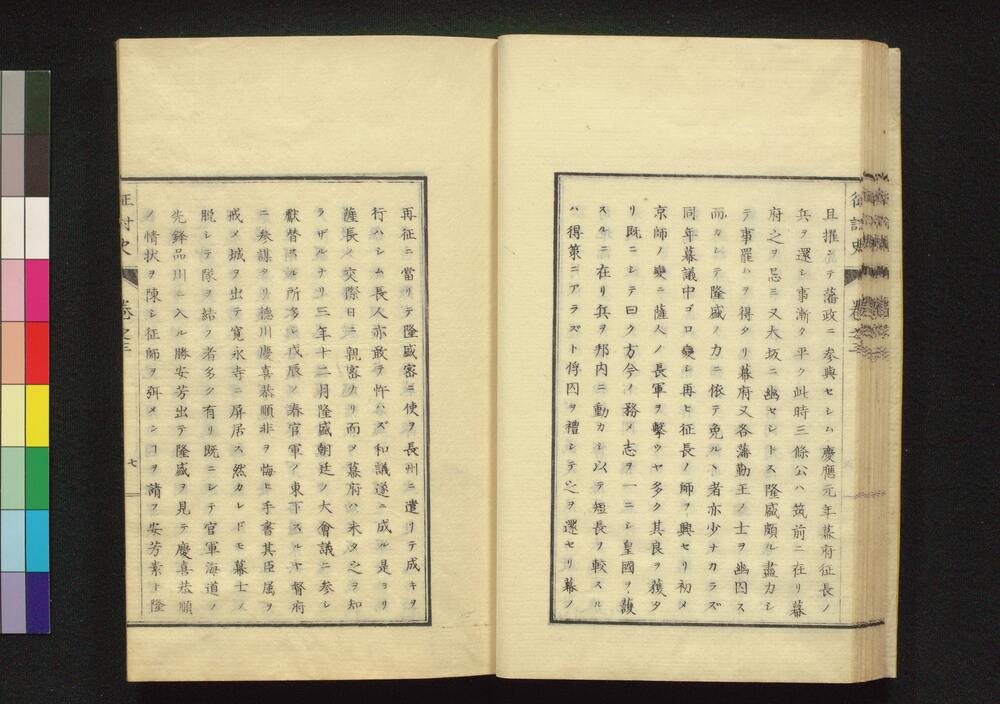 征討史 卷之三
且擢シテ藩政ニ參與セシム慶應元年幕府征長ノ
兵ヲ還シ事漸ク平ク此時三條公ハ筑前ニ在リ幕
府之ヲ忌ミ又大坂ニ幽セントス隆盛頗ル盡力シ
テ事罷ハヲ得タリ幕府又各藩勤王ノ士ヲ幽囚ス
而カシテ隆盛ノ力ニ依テ免ルヽ者亦少ナカラズ
同年幕議中ゴロ變シ再ヒ征長ノ師ヲ興セリ初メ
京師ノ變ニ薩人ノ長軍ヲ擊ウヤ多ク其良ヲ獲タ
リ既ニシテ曰ク方今ノ務メ志ヲ一ニシ皇國ヲ護
スルニ在リ兵ヲ邦內ニ動カシ以テ短長ヲ較スル
ハ得策ニアラズト俘囚ヲ禮シテ之ヲ還セリ幕ノ
再征ニ當リテ隆盛密ニ使ヲ長州ニ遣リテ成キヲ
行ハシム長人亦敢テ忤ハズ和議遂ニ成ル是ヨリ
薩長ノ交際日ニ親密ナリ而メ幕府ハ未タ之ヲ知
ラザルナリ三年十二月隆盛朝廷ノ大會議ニ參シ
獻替スル所多シ戊辰ノ春官軍ノ東下スルヤ督府
ニ參謀タリ德川慶喜恭順非ヲ悔ヒ手書其臣屬ヲ
戒メ城ヲ出テ寬永寺ニ屏居ス然カレドモ幕士ノ
脫シテ隊ヲ結フ者多ク有リ既ニシテ官軍海道ノ
先鋒品川ニ入ル勝安芳出テ隆盛ヲ見テ慶喜恭順
ノ情狀ヲ陳シ征師ヲ弭メンコヲ請フ安芳素ト隆
征討史 卷之三
七